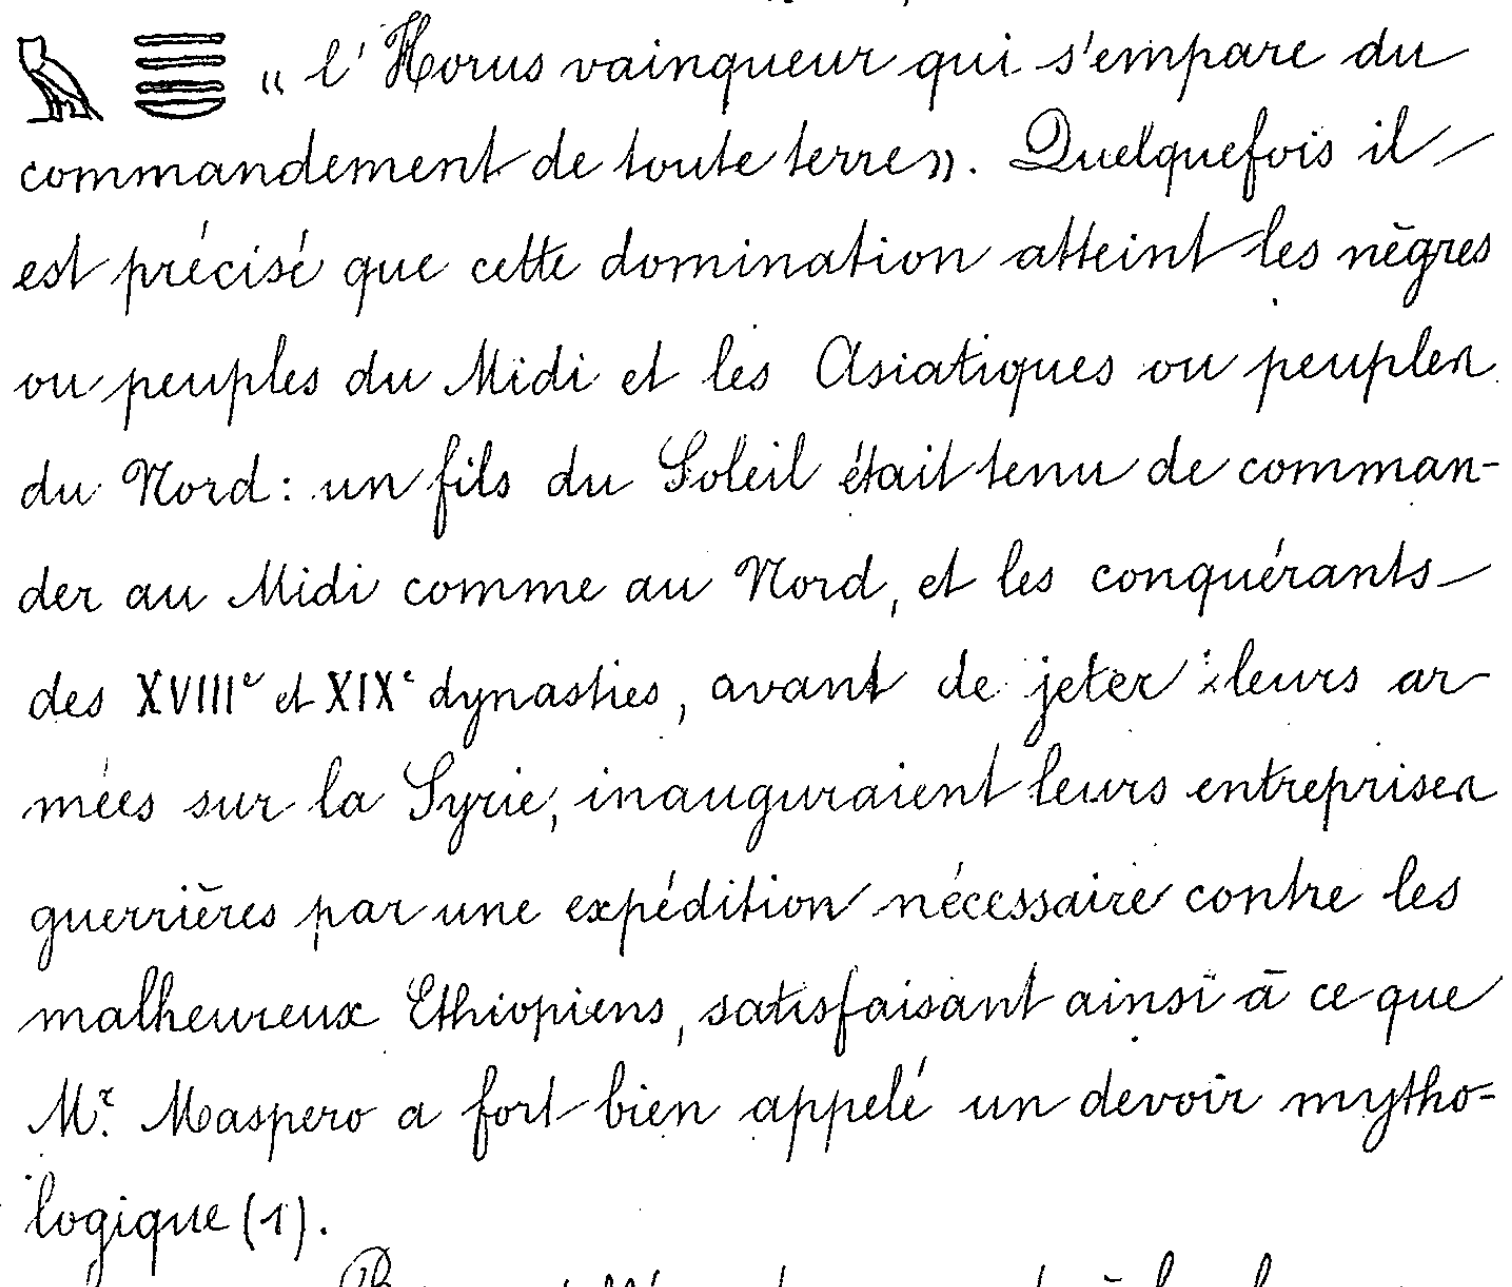 « l'Horus vainqueur qui s'empare du
commandement de toute terre». Quelquefois il
est précisé que cette domination atteint les nègres
ou peuples du Midi et les Asiatiques ou peuples
du Nord: un fils du Soleil était tenu de comman-
der au Midi comme au Nord, et les conquérants
des XVIIIe et XIXe dynasties, avant de jeter leurs ar-
mées sur la Syrie, inauguraient leurs entreprises
guerrières par une expédition nécessaire contre les
malheureux Ethiopiens, satisfaisant ainsi à ce que
Mr. Maspero a fort bien appelé un devoir mytho-
logique (1).